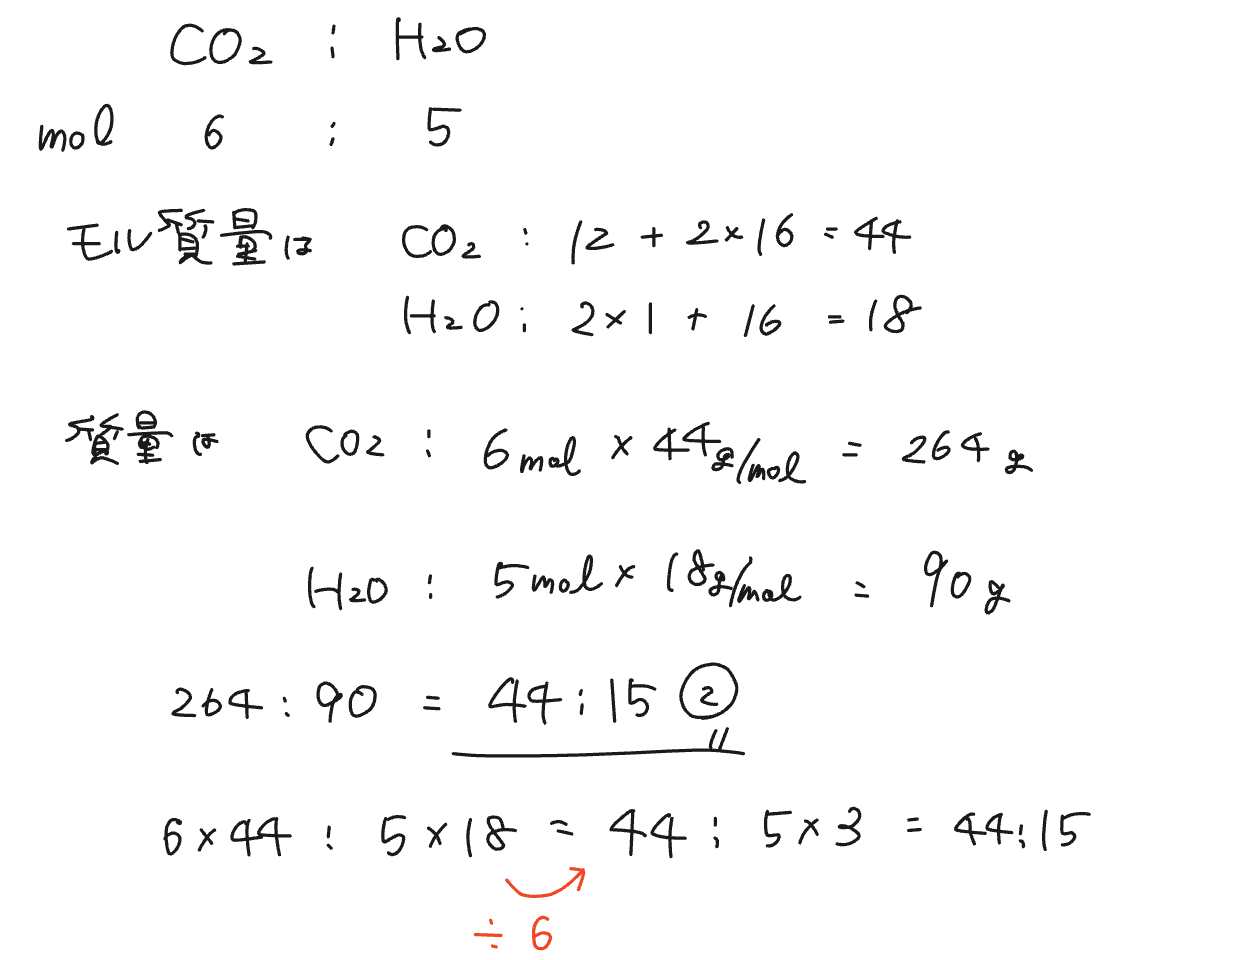 CO₂ : H₂O
mol 6 : 5
モル質量は CO₂ : 12 + 2×16 = 44
H₂O : 2×1 + 16 = 18
質量は CO2 : 6mol × 44g/mol = 264g
H₂O : 5mol × 18g/mol = 90g
264 : 90 = 44 : 15 ②
6×44 : 5×18 = 44 : 5×3 = 44:15
÷6